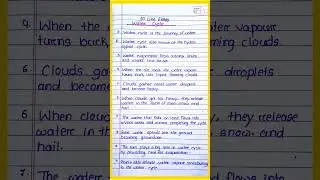 10 Line Essay
Water Cycle
1. Water cycle is the journey of water.
2. Water cycle also known as the hydro-
logical cycle.
3. Water evaporates from oceans, rivers
and
4. When the air cools the water vapour
turns back into liquid forming clouds
5. Clouds gather more water droplets
and become heavy.
6. When clouds get too heavy, they release
water in the form of rain, snow and
hail.
7. The water that falls on land flows into
rivers, lakes and oceans completing the cycle.
8. Some water spreads into the ground
becoming groundwater.
9. The sun plays a big role in water cycle
by providing heat for evaporation.
10. Plants also release water vapour contributing
to the water cycle.
4. When the
turns back
Clouds ga
and become
6. When cloud
water in
hail.
7. The wate
water vapour
ming clouds
droplets
they release
snow and